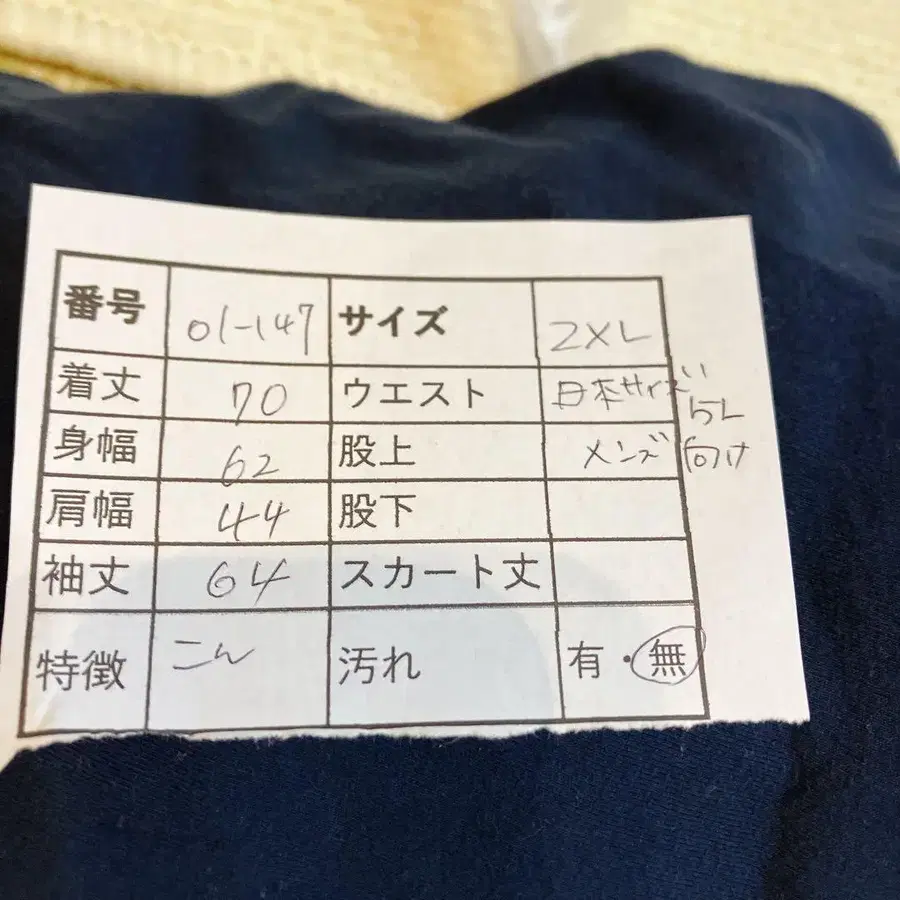 番号 01-147 サイズ 2XL
着丈 70 ウエスト 日本サイズ 5L
身幅 62 股上 メンズ向け
肩幅 44 股下
袖丈 64 スカート丈
特徴 こん 汚れ 有・無